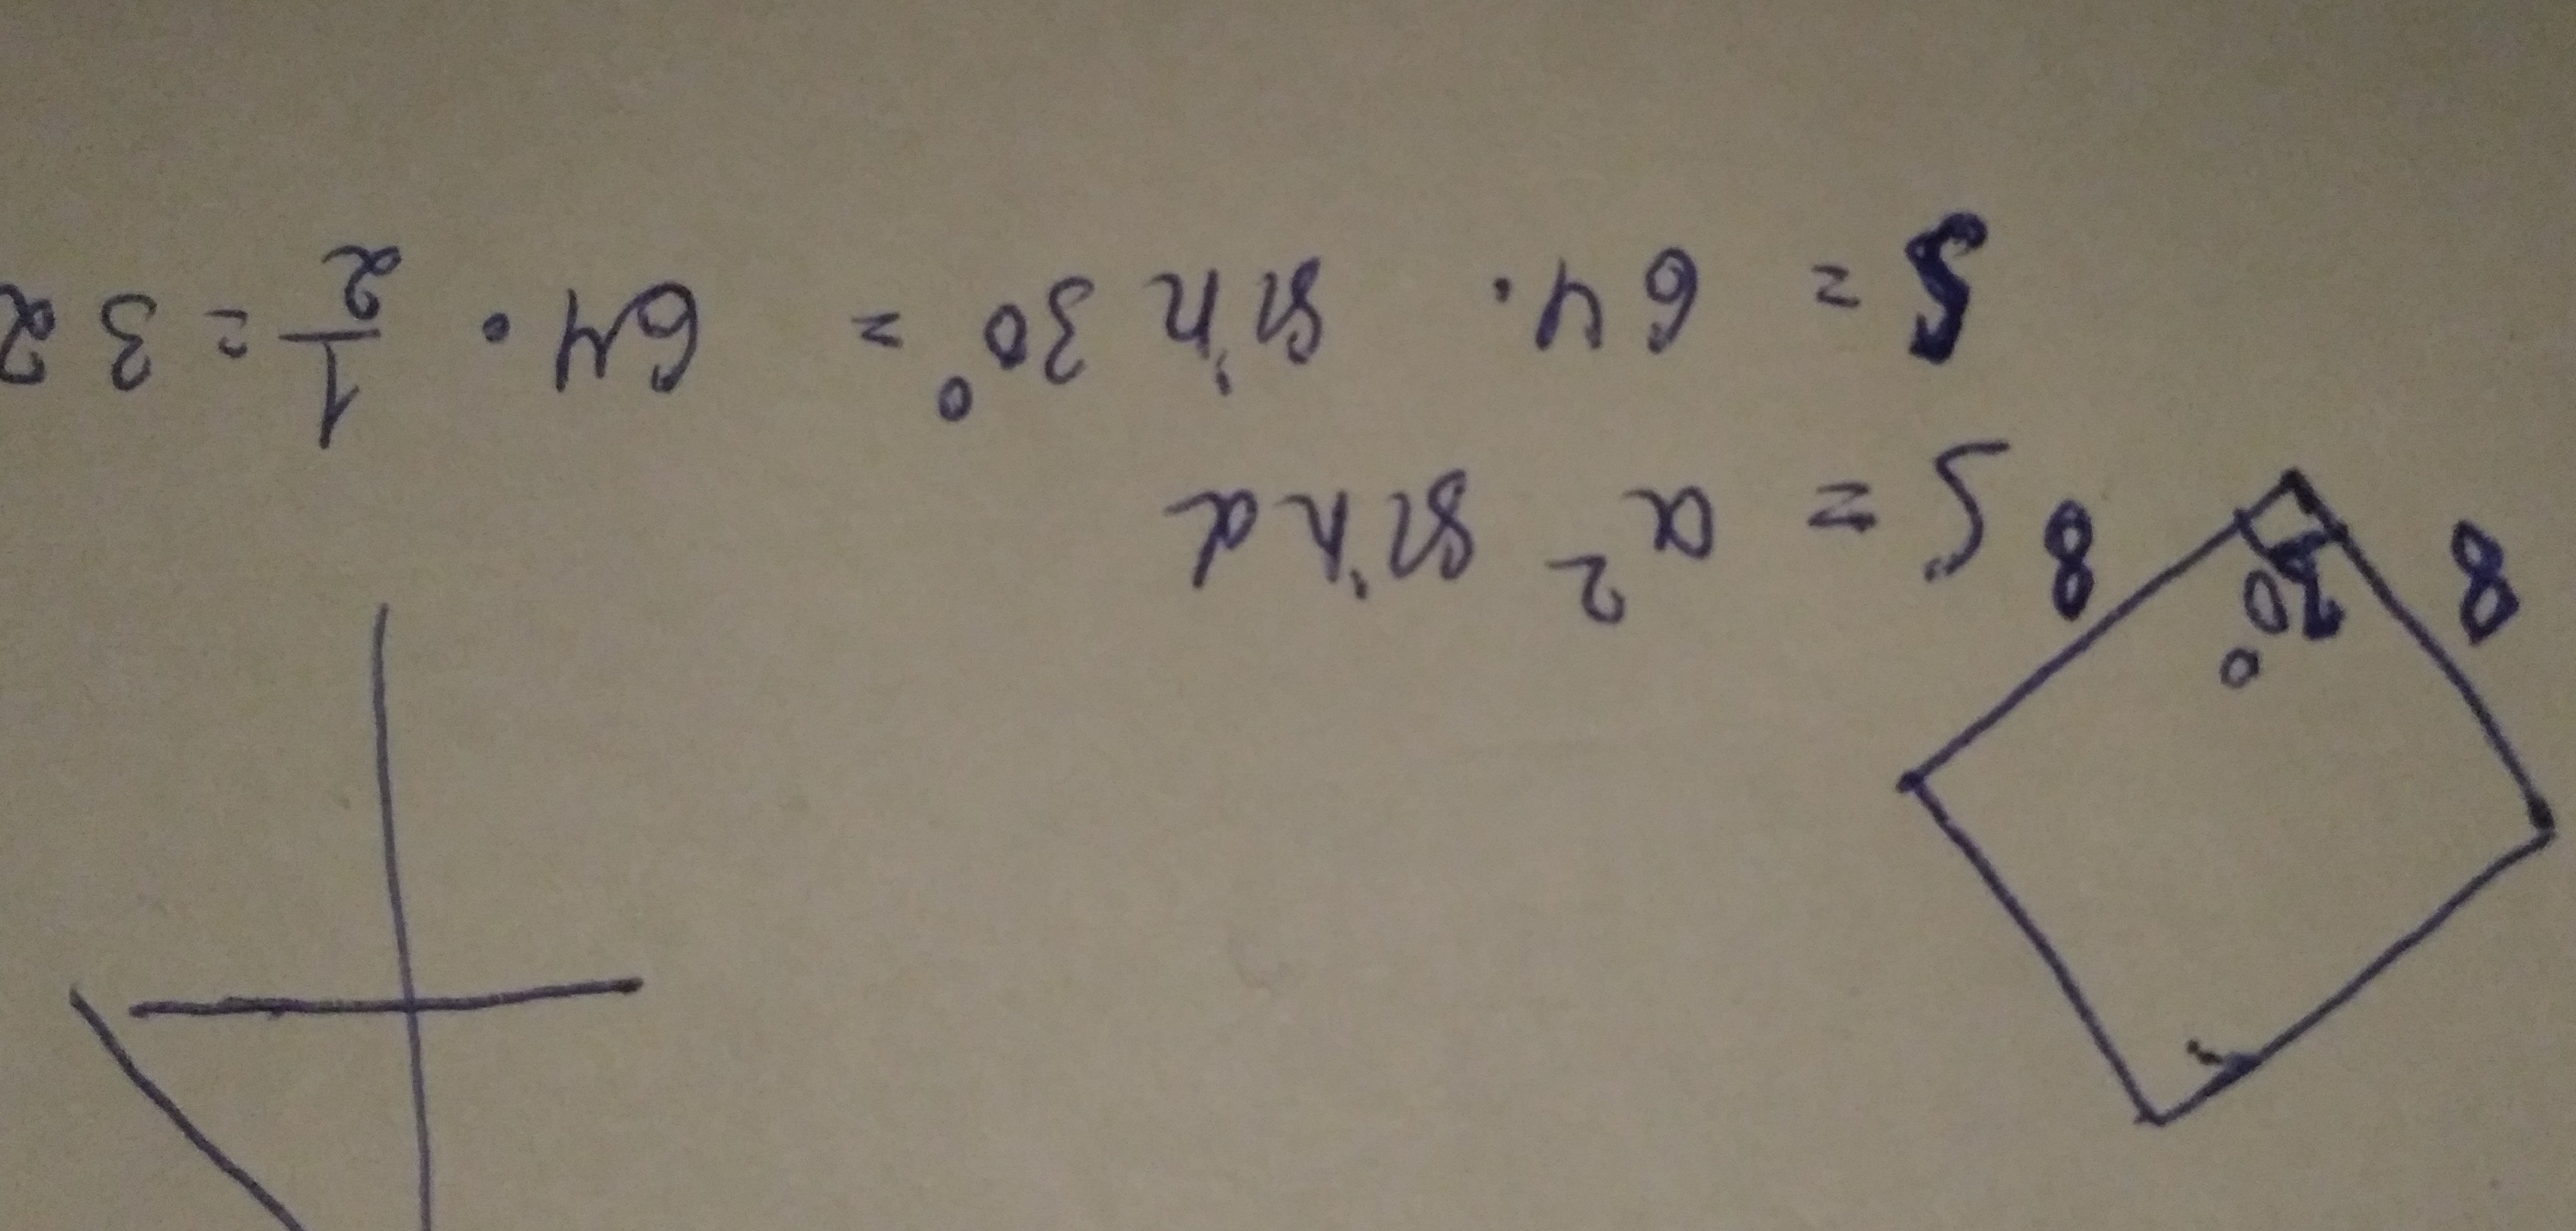 8
8
30°
S = a² sin α
S = 64 · sin 30° = 64 · 1/2 = 32